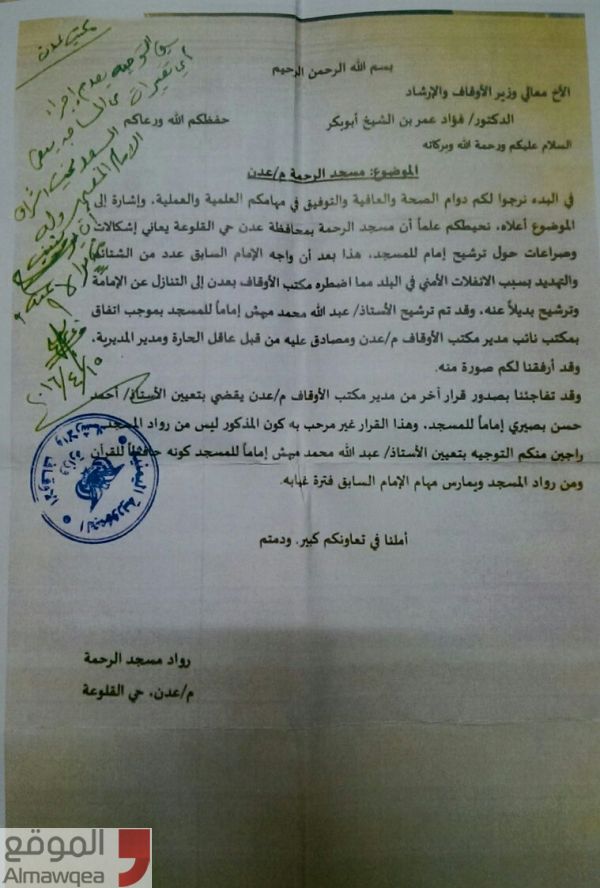 بسم الله الرحمن الرحيم
الأخ معالي وزير الأوقاف والإرشاد
الدكتور/ فؤاد عمر بن الشيخ أبوبكر
حفظكم الله ورعاكم
السلام عليكم ورحمة الله وبركاته
الموضوع: مسجد الرحمة م/عدن
في البدء نرجوا لكم دوام الصحة والعافية والتوفيق في مهامكم العلمية والعملية، وإشارة إلى
الموضوع أعلاه، نحيطكم علماً أن مسجد الرحمة بمحافظة عدن حي القلوعة يعاني إشكالات
وصراعات حول ترشيح إمام للمسجد، هذا بعد أن واجه الإمام السابق عدد من الشتائم
والتهديد بسبب الانفلات الأمني في البلد مما اضطره مكتب الأوقاف بعدن إلى التنازل عن الإمامة
وترشيح بديلاً عنه، وقد تم ترشيح الأستاذ/ عبد الله محمد ميهش إماماً للمسجد بموجب اتفاق
بمكتب نائب مدير مكتب الأوقاف م/عدن ومصادق عليه من قبل عاقل الحارة ومدير المديرية،
وقد أرفقنا لكم صورة منه.
وقد تفاجئنا بصدور قرار أخر من مدير مكتب الأوقاف م/عدن يقضي بتعيين الأستاذ/ أحمد
حسن بصيري إماماً للمسجد، وهذا القرار غير مرحب به كون المذكور ليس من رواد المسجد
راجين منكم التوجيه بتعيين الأستاذ/ عبد الله محمد ميهش إماماً للمسجد كونه حافظاً للقرآن
ومن رواد المسجد ويمارس مهام الإمام السابق فترة غيابه.
أملنا في تعاونكم كبير، ودمتم
رواد مسجد الرحمة
م/عدن، حي القلوعة
مكتب عدن
إجراء
أي تغييرات في المساجد
٢٠١٦/٤/١٥
الجمهورية اليمنية
وزارة الأوقاف والإرشاد
الموقع
Almawqea